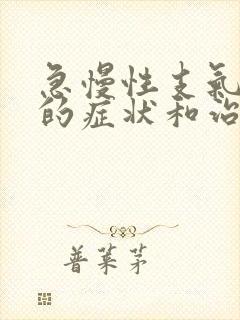 急慢性支氣
的症状和治
普葉茅